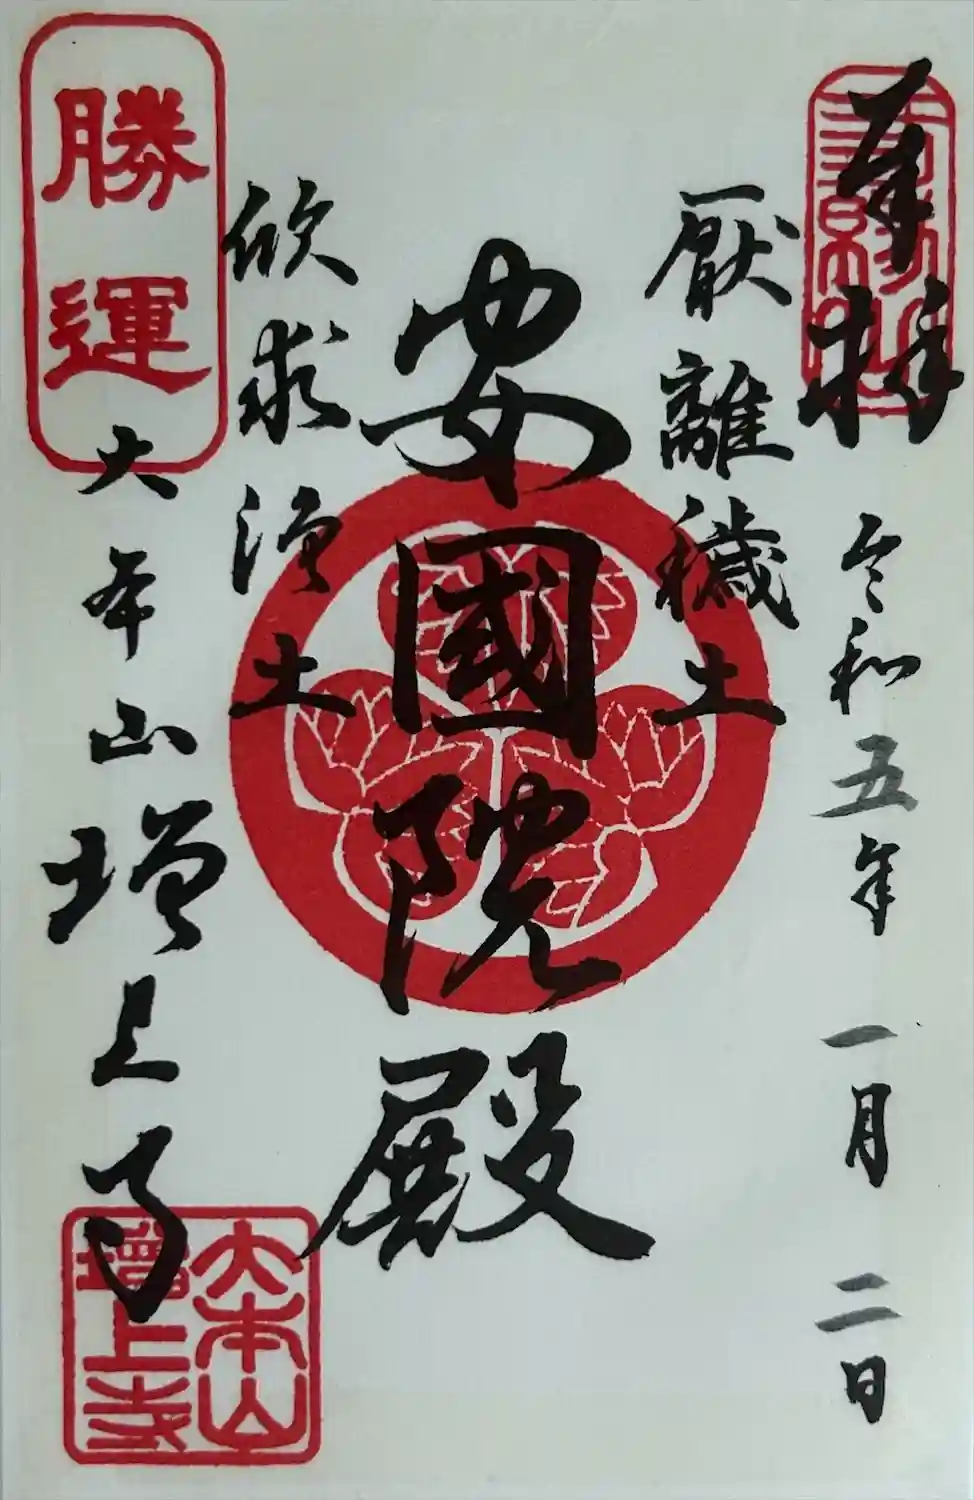 奉拝
令和五年 一月 二日
厭離穢土
安國院殿
欣求浄土
勝運
大本山増上寺
大本山
増上寺